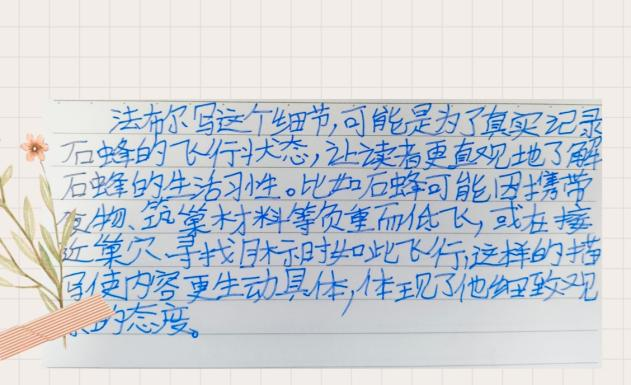 法布尔写这个细节,可能是为了真实记录
石蜂的飞行状态,让读者更直观地了解
石蜂的生活习性。比如石蜂可能因携带
物、筑巢材料等负重而低飞,或在接
近巢穴、寻找目标时如此飞行,这样的描
写使内容更生动具体,体现了他细致观
的态度。